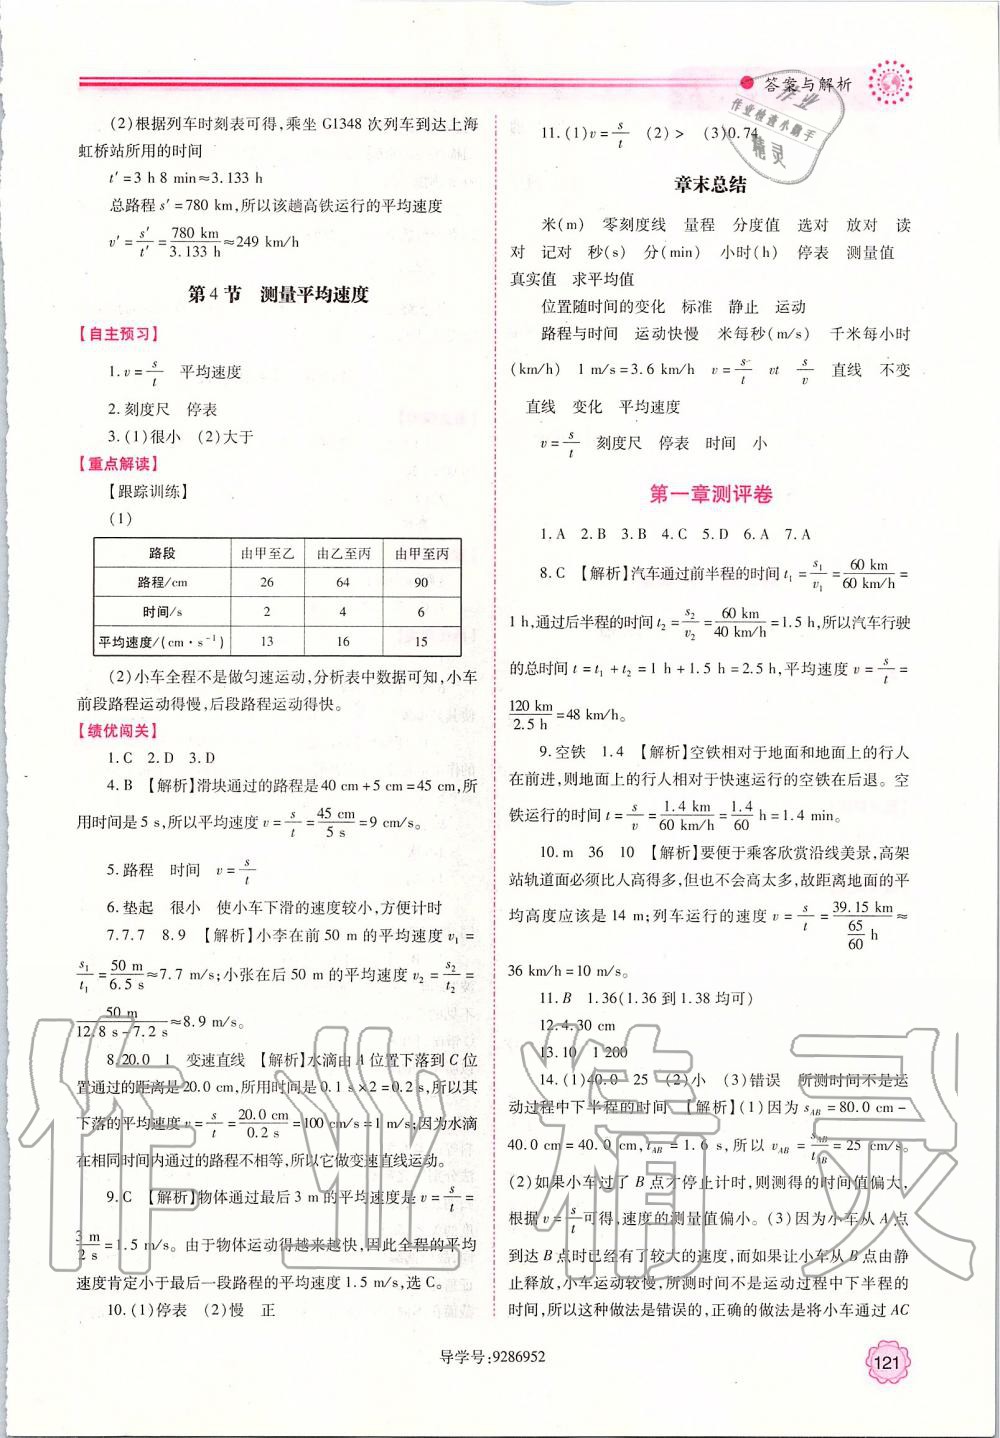 答案与解析
(2)根据列车时刻表可得,乘坐 G1348 次列车到达上海
虹桥站所用的时间
t′=3 h 8 min≈3.133 h
总路程 s′=780 km,所以该趟高铁运行的平均速度
v′=s′/t′=780 km/3.133 h≈249 km/h
第 4 节 测量平均速度
【自主预习】
1.v=s/t 平均速度
2.刻度尺 停表
3.(1)很小 (2)大于
【重点解读】
【跟踪训练】
(1)
路段 由甲至乙 由乙至丙 由甲至丙
路程/cm 26 64 90
时间/s 2 4 6
平均速度/(cm·s⁻¹) 13 16 15
(2)小车全程不是做匀速运动,分析表中数据可知,小车
前段路程运动得慢,后段路程运动得快。
【绩优闯关】
1.C 2.D 3.D
4.B 【解析】滑块通过的路程是40 cm+5 cm=45 cm,所
用时间是5 s,所以平均速度 v=s/t=45 cm/5 s=9 cm/s。
5.路程 时间 v=s/t
6.垫起 很小 使小车下滑的速度较小,方便计时
7.7.7 8.9 【解析】小李在前 50 m 的平均速度 v₁=
s₁/t₁=50 m/6.5 s≈7.7 m/s;小张在后 50 m 的平均速度 v₂=s₂/t₂=
50 m/12.8 s-7.2 s≈8.9 m/s。
8.20.0 1 变速直线 【解析】水滴由 A 位置下落到 C 位
置通过的距离是20.0 cm,所用时间是0.1 s×2=0.2 s,所以其
下落的平均速度 v=s/t=20.0 cm/0.2 s=100 cm/s=1 m/s;因为水滴
在相同时间内通过的路程不相等,所以它做变速直线运动。
9.C 【解析】物体通过最后 3 m 的平均速度是 v=s/t=
3 m/2 s=1.5 m/s。由于物体运动得越来越快,因此全程的平均
速度肯定小于最后一段路程的平均速度 1.5 m/s,选 C。
10.(1)停表 (2)慢 正
11.(1)v=s/t (2)> (3)0.74
章末总结
米(m) 零刻度线 量程 分度值 选对 放对 读
对 记对 秒(s) 分(min) 小时(h) 停表 测量值
真实值 求平均值
位置随时间的变化 标准 静止 运动
路程与时间 运动快慢 米每秒(m/s) 千米每小时
(km/h) 1 m/s=3.6 km/h v=s/t vt s/v 直线 不变
直线 变化 平均速度
v=s/t 刻度尺 停表 时间 小
第一章测评卷
1.A 2.B 3.B 4.C 5.D 6.A 7.A
8.C 【解析】汽车通过前半程的时间 t₁=s₁/v₁=60 km/60 km/h=
1 h,通过后半程的时间 t₂=s₂/v₂=60 km/40 km/h=1.5 h,所以汽车行驶
的总时间 t=t₁+t₂=1 h+1.5 h=2.5 h,平均速度 v=s/t=
120 km/2.5 h=48 km/h。
9.空铁 1.4 【解析】空铁相对于地面和地面上的行人
在前进,则地面上的行人相对于快速运行的空铁在后退。空
铁运行的时间 t=s/v=1.4 km/60 km/h=1.4/60 h=1.4 min。
10.m 36 10 【解析】要便于乘客欣赏沿线美景,高架
站轨道面必须比人高得多,但也不会高太多,故距离地面的平
均高度应该是 14 m;列车运行的速度 v=s/t=39.15 km/(65/60 h)≈
36 km/h=10 m/s。
11.B 1.36(1.36 到 1.38 均可)
12.4.30 cm
13.10 1 200
14.(1)40.0 25 (2)小 (3)错误 所测时间不是运
动过程中下半程的时间 【解析】(1)因为 sAB=80.0 cm-
40.0 cm=40.0 cm,tAB=1.6 s,所以 vAB=sAB/tAB=25 cm/s。
(2)如果小车过了 B 点才停止计时,则测得的时间值偏大,
根据 v=s/t可得,速度的测量值偏小。(3)因为小车从 A 点
到达 B 点时已经有了较大的速度,而如果让小车从 B 点由静
止释放,小车运动较慢,所测时间不是运动过程中下半程的
时间,所以这种做法是错误的,正确的做法是将小车通过 AC
导学号:9286952
121
作业精灵
作业
作业检查小助手
精灵